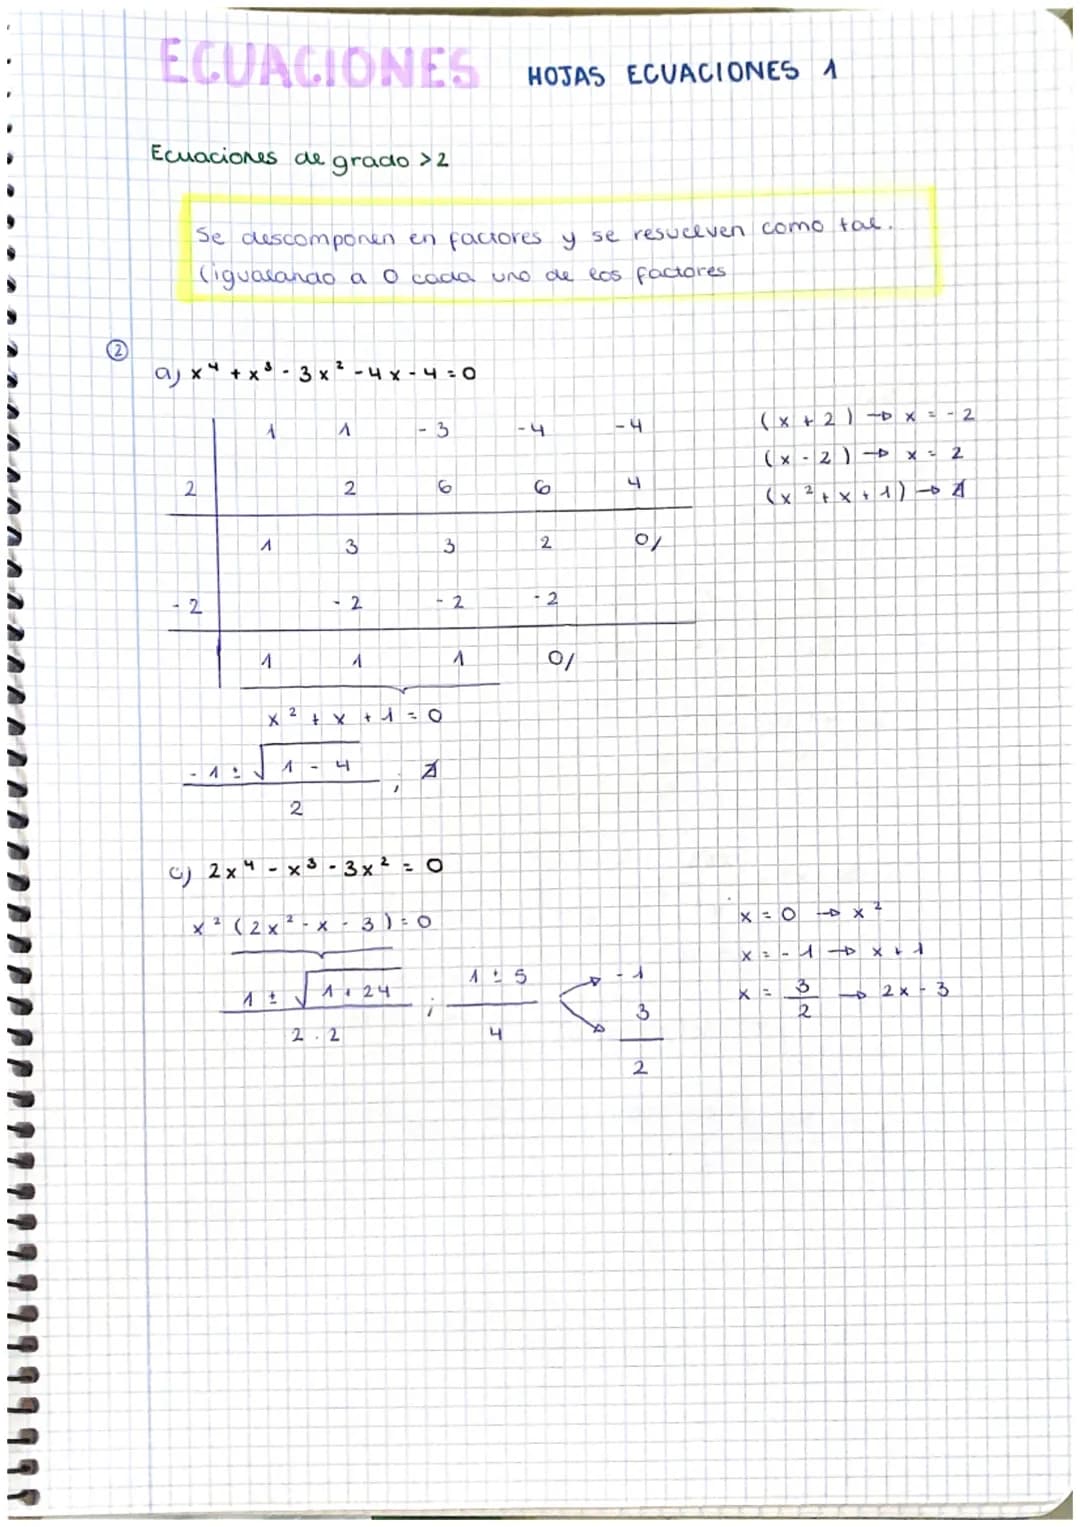 ECUACIONES HOJAS ECUACIONES 1
Ecuaciones de grado >2
Se descomponen en factores y se resuelven como tal.
(igualando a 0 cada uno de los factores
②
a) x⁴ + x³ - 3x² - 4x - 4 = 0
1 1 -3 -4 -4
2 2 6 6 4
1 3 3 2 0/
-2 -2 -2 -2
1 1 1 0/
x² + x + 1 = 0
-1 ± √1 - 4 / 2 ; ∄
(x + 2) → x = -2
(x - 2) → x = 2
(x² + x + 1) → ∄
c) 2x⁴ - x³ - 3x² = 0
x² (2x² - x - 3) = 0
1 ± √1 + 24 / 2 . 2 ; 1 ± 5 / 4
-1
3 / 2
x = 0 → x²
x = -1 → x + 1
x = 3/2 → 2x - 3